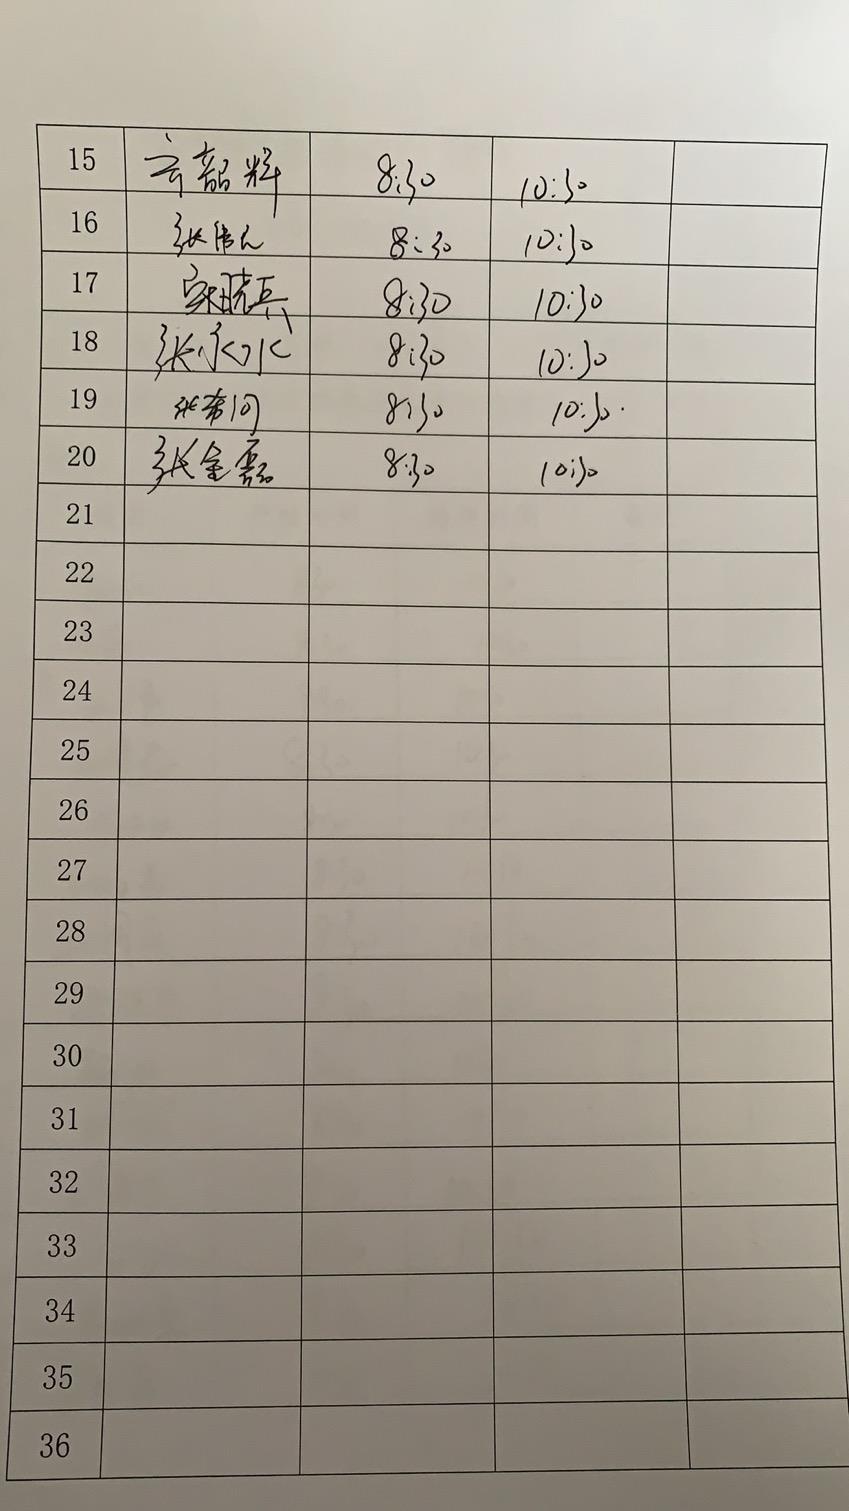 15 云韶辉 8:30 10:30
16 张伟 8:30 10:30
17 宋晓兵 8:30 10:30
18 张永水 8:30 10:30
19 张希闪 8:30 10:30
20 张金磊 8:30 10:30
21
22
23
24
25
26
27
28
29
30
31
32
33
34
35
36